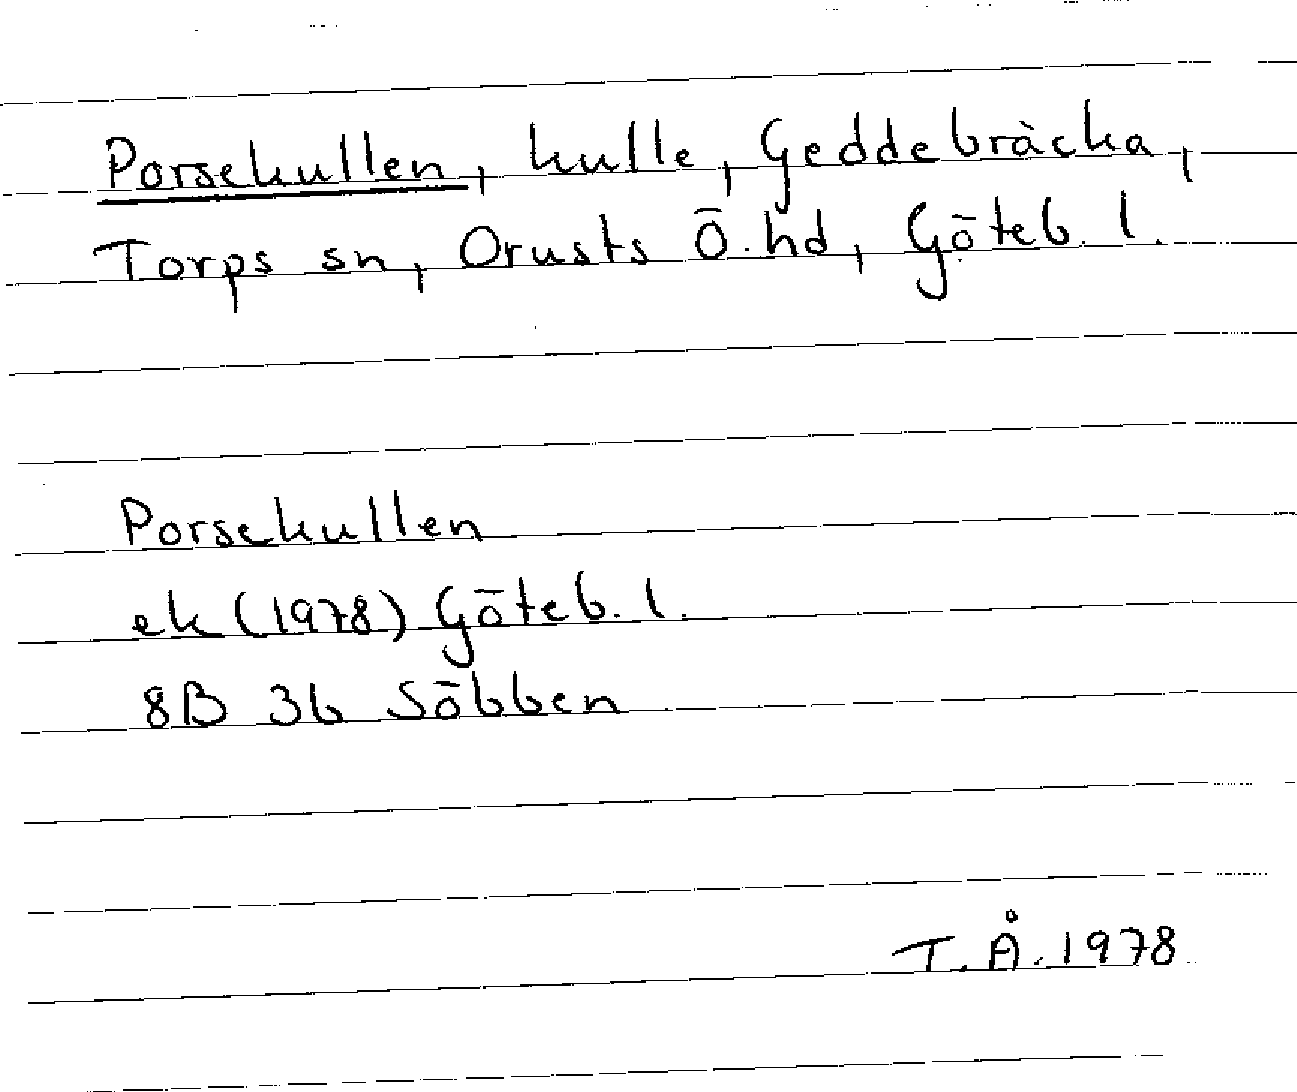 Porsekullen, kulle, Geddebräcka,
Torps sn, Orusts Ö. hd, Göteb. l.
Porsekullen
ek (1978) Göteb. l.
8B 3b Söbben
T. Å. 1978